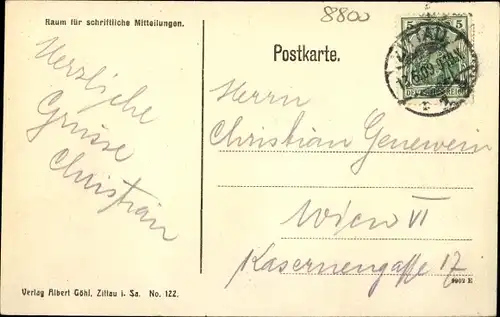 Raum für schriftliche Mitteilungen.
8800
5 5
ZITTAU
Postkarte.
Herzliche
Grüsse
Christian
Herrn
Christian Genewein
Wien VI
Kasernengasse 17
Verlag Albert Göhl, Zittau i. Sa. No. 122.